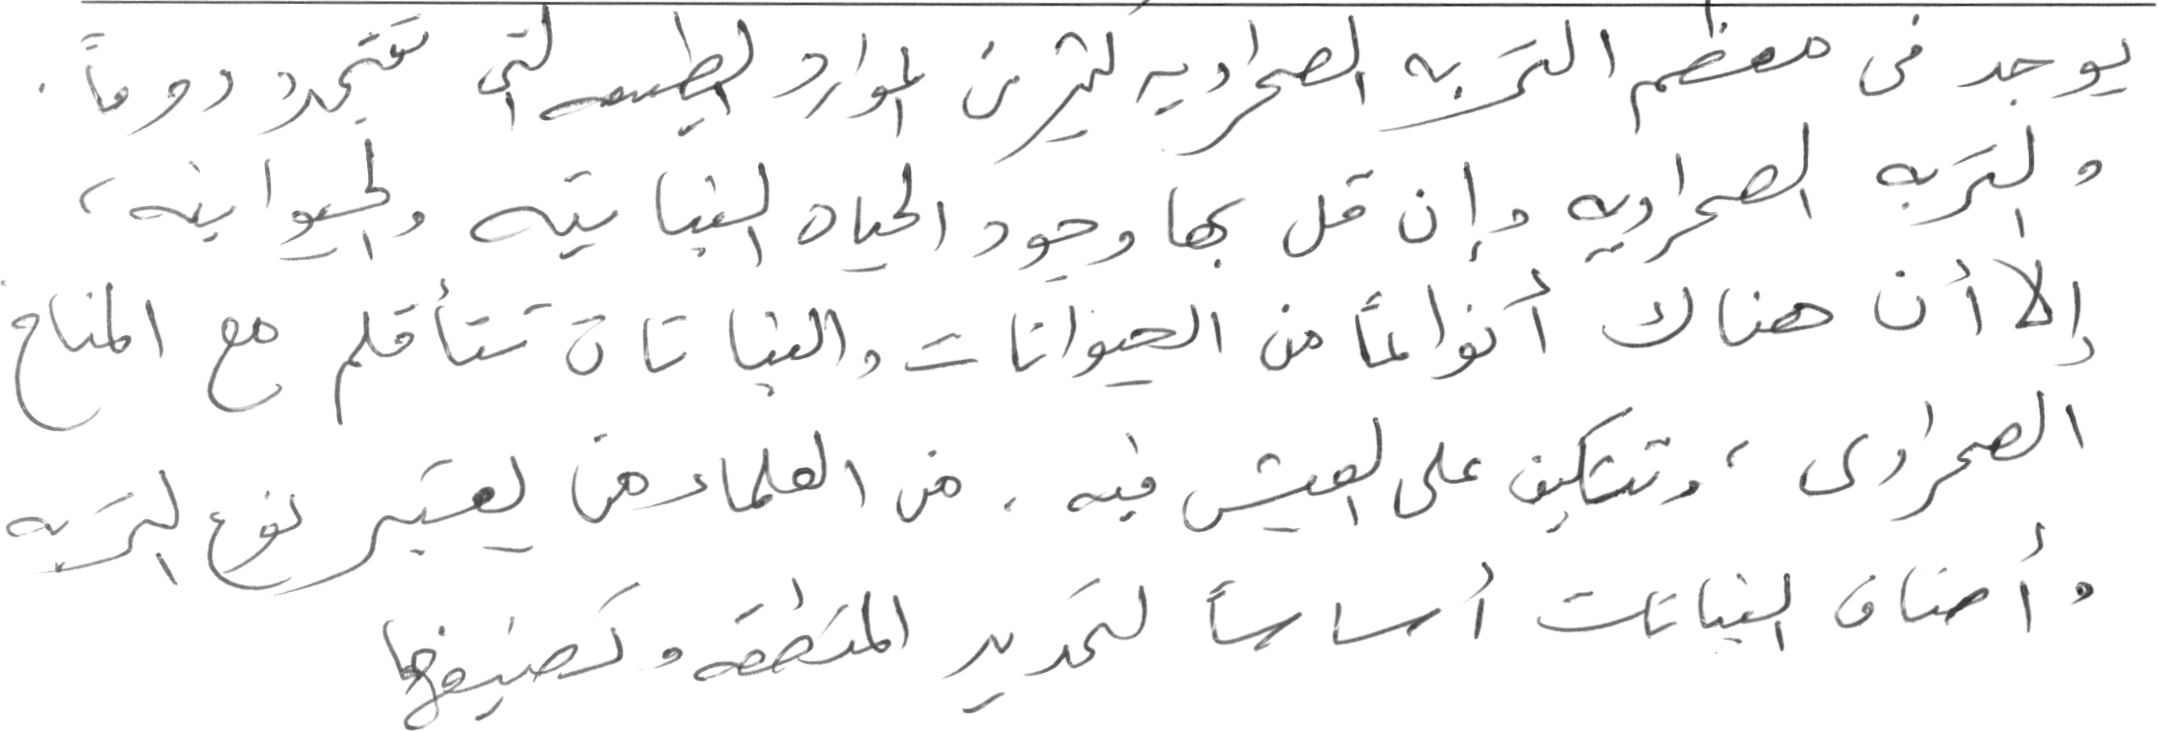 يوجد فى معظم التربه الصحراويه كثير من الموارد الطبيعيه التي تتجدد دوماً .
والتربه الصحراويه وإن قل بها وجود الحياه النباتيه والحيوانيه ،
إلا أن هناك أنواعاً من الحيوانات والنباتات تتأقلم مع المناخ
الصحراوى ، وتتكيف على العيش فيه . من العلماء من يعتبر نوع التربه
وأصناف النباتات أساساً لتحديد المنطقه وتصنيفها